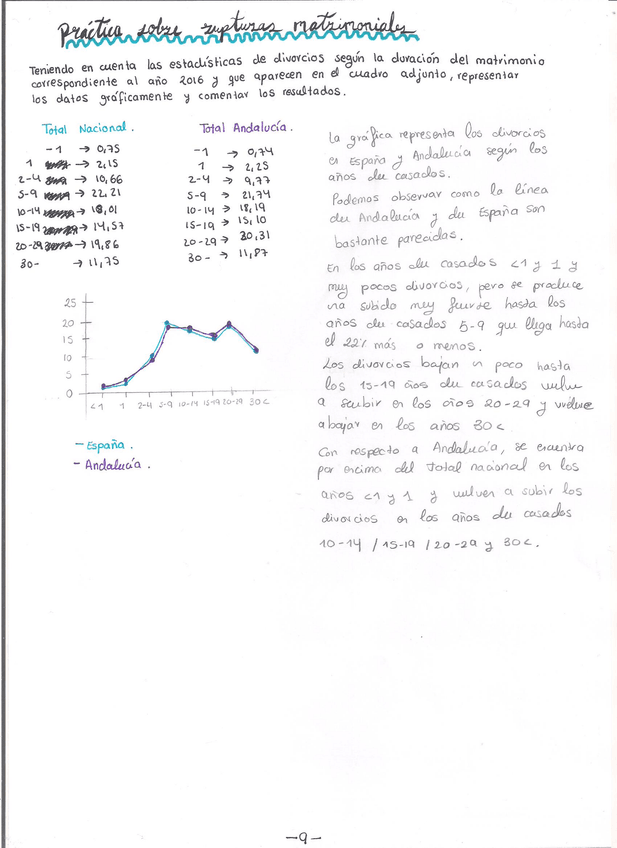 Práctica sobre rupturas matrimoniales
Teniendo en cuenta las estadísticas de divorcios según la duración del matrimonio
correspondiente al año 2016 y que aparecen en el cuadro adjunto, representar
los datos gráficamente y comentar los resultados.
Total Nacional.
-1 → 0,75
1 → 2,15
2-4 → 10,66
5-9 → 22,21
10-14 → 18,01
15-19 → 14,57
20-29 → 19,86
30- → 11,75
Total Andalucía.
-1 → 0,74
1 → 2,25
2-4 → 9,77
5-9 → 21,74
10-14 → 18,19
15-19 → 15,10
20-29 → 20,31
30- → 11,87
25
20
15
10
5
0
<1 1 2-4 5-9 10-14 15-19 20-29 30<
- España.
- Andalucía.
La gráfica representa los divorcios
en España y Andalucía según los
años de casados.
Podemos observar como la línea
de Andalucía y de España son
bastante parecidas.
En los años de casados <1 y 1 y
muy pocos divorcios, pero se produce
una subida muy fuerte hasta los
años de casados 5-9 que llega hasta
el 22% más o menos.
Los divorcios bajan un poco hasta
los 15-19 años de casados vuelve
a subir en los años 20-29 y vuelve
a bajar en los años 30<
Con respecto a Andalucía, se encuentra
por encima del total nacional en los
años <1 y 1 y vuelven a subir los
divorcios en los años de casados
10-14 / 15-19 / 20-29 y 30<.
-9-